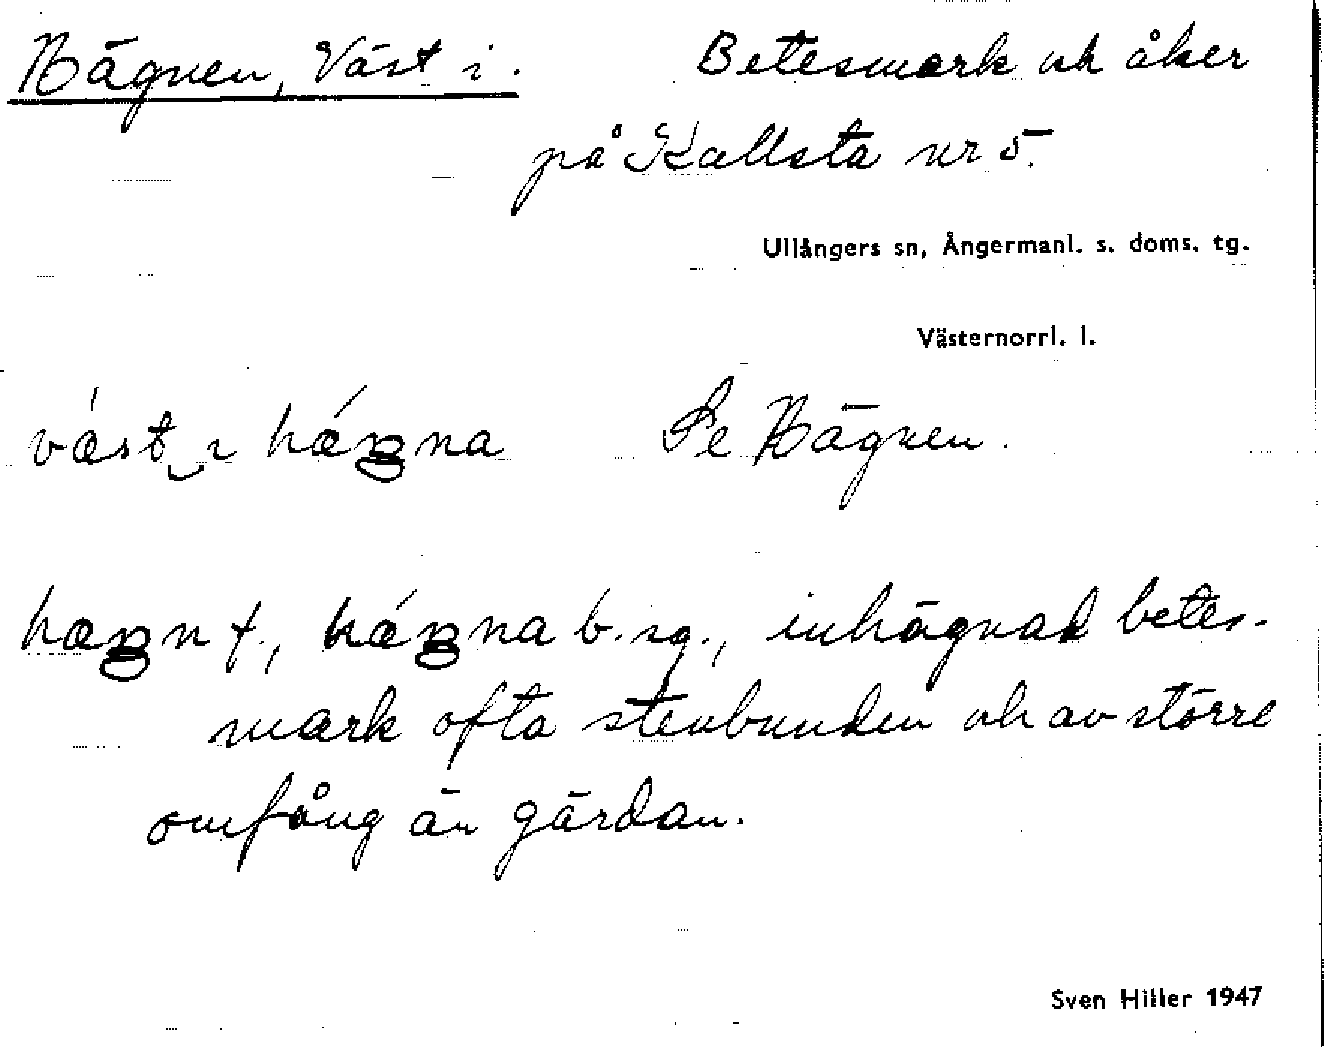 Hägnen, Väst i. Betesmark och åker
på Kallsta nr 5.
Ullångers sn, Ångermanl. s. doms. tg.
Västernorrl. l.
vǽst‿ı hǽŋna Se Hägnen.
hæŋn f., hǽŋna b. sg., inhägnad betes-
mark ofta stenbunden och av större
omfång än gärdan.
Sven Hiller 1947